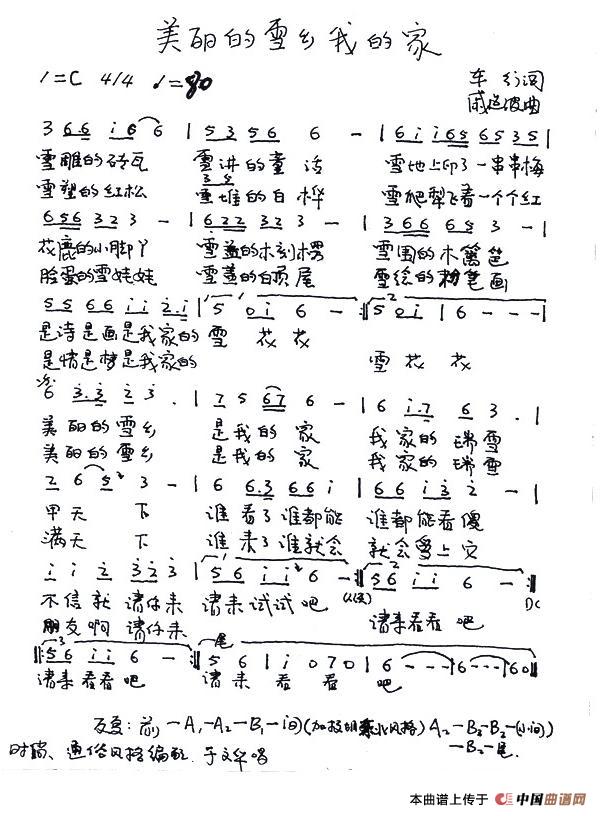 美丽的雪乡我的家
1=C 4/4 ♩=80
车行词
戚建波曲
3 6 6 i 6 6 | 5 3 5 6 6 - | 6 i i 6 5 6 5 3 5 |
雪雕的砖瓦 雪讲的童话 雪地上印了一串串梅
雪塑的红松 雪堆的白桦 雪爬犁飞着一个个红
6 5 6 3 2 3 - | 6 2 2 3 2 3 - | 3 6 6 6 5 3 - |
花鹿的小脚丫 雪盖的木刻楞 雪围的木篱笆
脸蛋的雪娃娃 雪盖的白顶屋 雪绘的粉笔画
5 5 6 6 i i 2. i | 5 0 i 6 - :| 5 0 i | 6 - - - |
是诗是画是我家的 雪花花
是情是梦是我家的 雪花花
6 3. 3 2 3 . | 2 5 6 7 6 - | 6 i. 7 6 3 . |
美丽的雪乡 是我的家 我家的瑞雪
美丽的雪乡 是我的家 我家的瑞雪
2 6 5 3 - | 6 6. 3 6 6 i | 6 6 i 3 2 - |
甲天下 谁看了谁都能 谁都能看傻
满天下 谁来了谁就会 就会爱上它
i i 2 3 2 3 | 5 6 i i 6 - :| 5 6 i i 6 - :|
不信就请你来 请来试试吧 请来看看吧 DC
朋友啊请你来
|: 5 6 i i 6 - :| 5 6 | i i 0 7 0 | 6 - - - | 6 - - 0 |
请来看看吧 尾 请来看看吧
反复:前—A₁—A₂—B₁—间
A₂—B₂—B₂—(小间)
—B₂—尾.
时尚、通俗风格编配. 于文华唱
本曲谱上传于 中国曲谱网